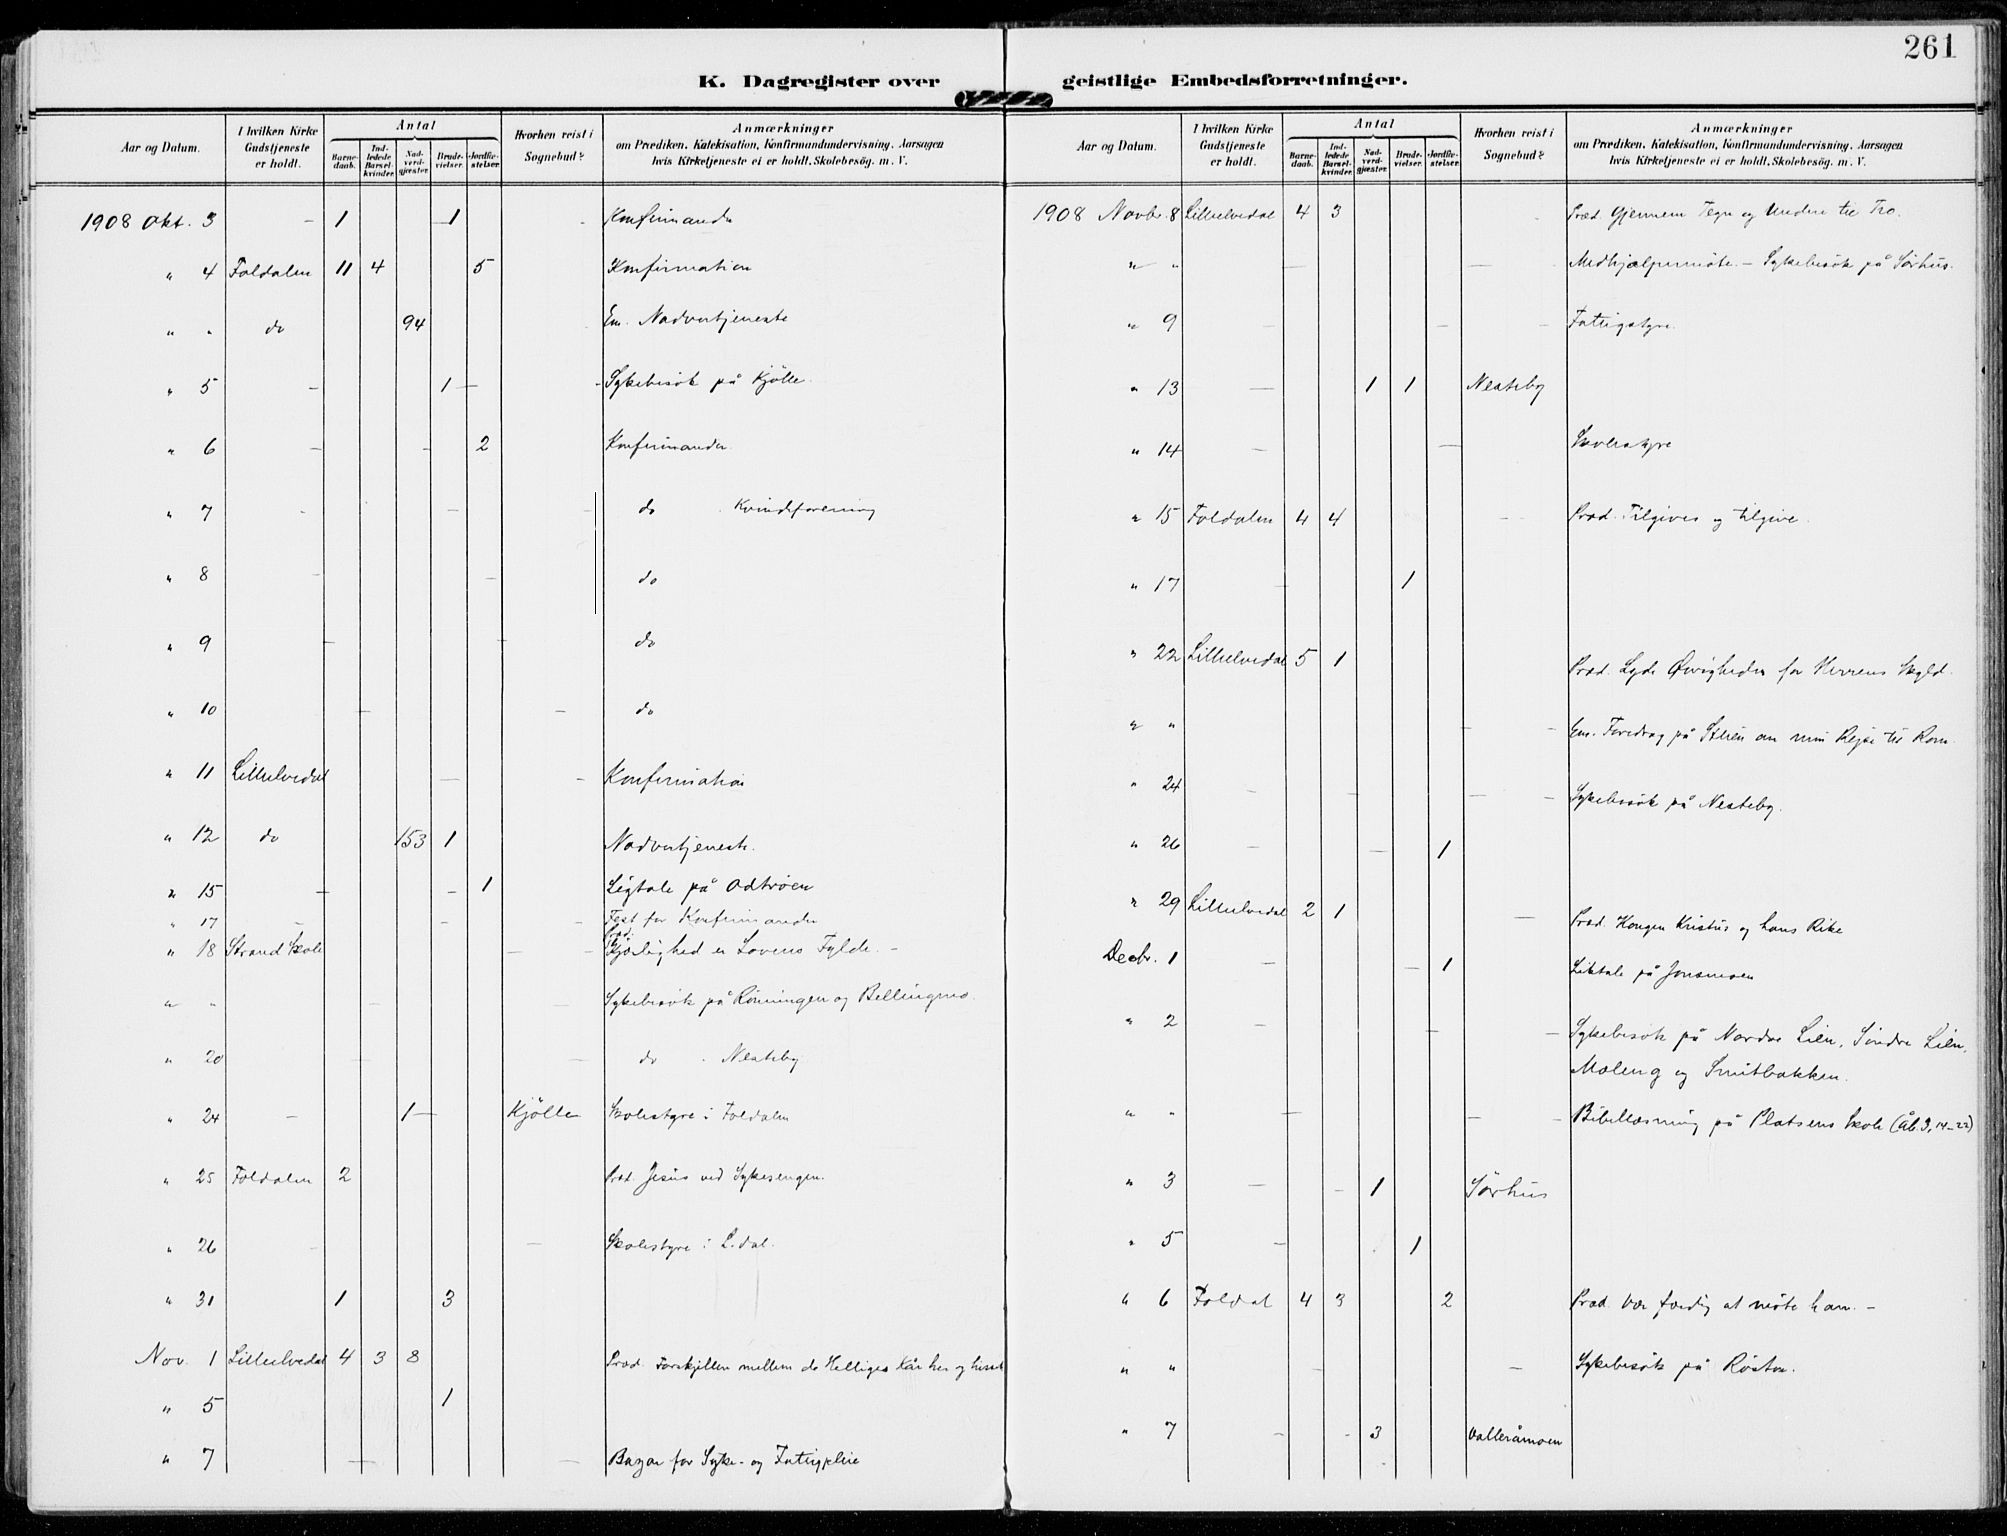 261
K. Dagregister over geistlige Embedsforretninger.
Aar og Datum. I hvilken Kirke Gudstjeneste er holdt. Antal Barnedaab. Indledede Barselkvinder. Nadverdgjæster. Brudevielser. Jordfæstelser. Hvorhen reist i Sognebud? Anmærkninger om Prædiken, Katekisation, Konfirmandundervisning, Aarsagen hvis Kirketjeneste ei er holdt, Skolebesög. m. V.
1908 Okt. 3 – 1 1 Konfirmander
" 4 Foldalen 11 4 5 Konfirmation
" " do 94 Em. Nadvertjeneste
" 5 – 1 – Sykebesök på Kjölle.
" 6 – – 2 Konfirmander.
" 7 – – do . Kvindeforening
" 8 – – do
" 9 – – do
" 10 – – do
" 11 Lilleelvedal – – Konfirmation
" 12 do 153 1 Nadvertjeneste.
" 15 – – 1 Ligtale på Odtröen
" 17 – – – Fest for Konfirmander
" 18 Strand Skole – – Præd. Kjærlighed er Lovens Fylde. –
" " – – Sykebesök på Rönningen og Bellingmo.
" 20 – – do . Nesteby
" 24 – 1 – Kjölle Skolestyre i Foldalen
" 25 Foldalen 2 Præd. Jesus ved Sykesengen.
" 26 – – Skolestyre i L.dal.
" 31 1 3
Nov. 1 Lilleelvedal 4 3 8 Præd. Forskjellen mellem de Helliges Kår her og hisset
" 5 1
" 7 – – Bazar for Syke- og Fatigpleie
Aar og Datum. I hvilken Kirke Gudstjeneste er holdt. Antal Barnedaab. Indledede Barselkvinder. Nadverdgjæster. Brudevielser. Jordfæstelser. Hvorhen reist i Sognebud? Anmærkninger om Prædiken, Katekisation, Konfirmandundervisning, Aarsagen hvis Kirketjeneste ei er holdt, Skolebesög. m. V.
1908 Novbr. 8 Lilleelvedal 4 3 Præd. Gjennem Tegn og Undere til Tro.
" " – – Medhjælpermöte. – Sykebesök på Sörhus.
" 9 – – – Fatigstyre.
" 13 – 1 1 Nesteby
" 14 – – Skolestyre
" 15 Foldalen 4 4 – Præd. Tilgives og tilgive.
" 17 – 1
" 22 Lilleelvedal 5 1 Præd. Lyde Övrigheden for Herrens Skyld.
" " – – Em. Foredrag på Steien om min Rejse til Rom.
" 24 – – – – Sykebesök på Nesteby.
" 26 – – 1
" 29 Lilleelvedal 2 1 – Præd. Kongen Kristus og hans Rike
Decbr. 1 – – 1 Liktale på Jonsmoen
" 2 – – – Sykebesök på Nordre Lien, Söndre Lien,
Moleng og Smitbakken.
" " – – – Bibellæsning på Platsens Skole (Åb. 3, 14–22)
" 3 – – 1 Sörhus
" 5 – 1
" 6 Foldal 4 3 2 Præd. Vær færdig at möte ham. –
" " – – Sykebesök på Röstøen.
" 7 – – 3 Valleråmoen